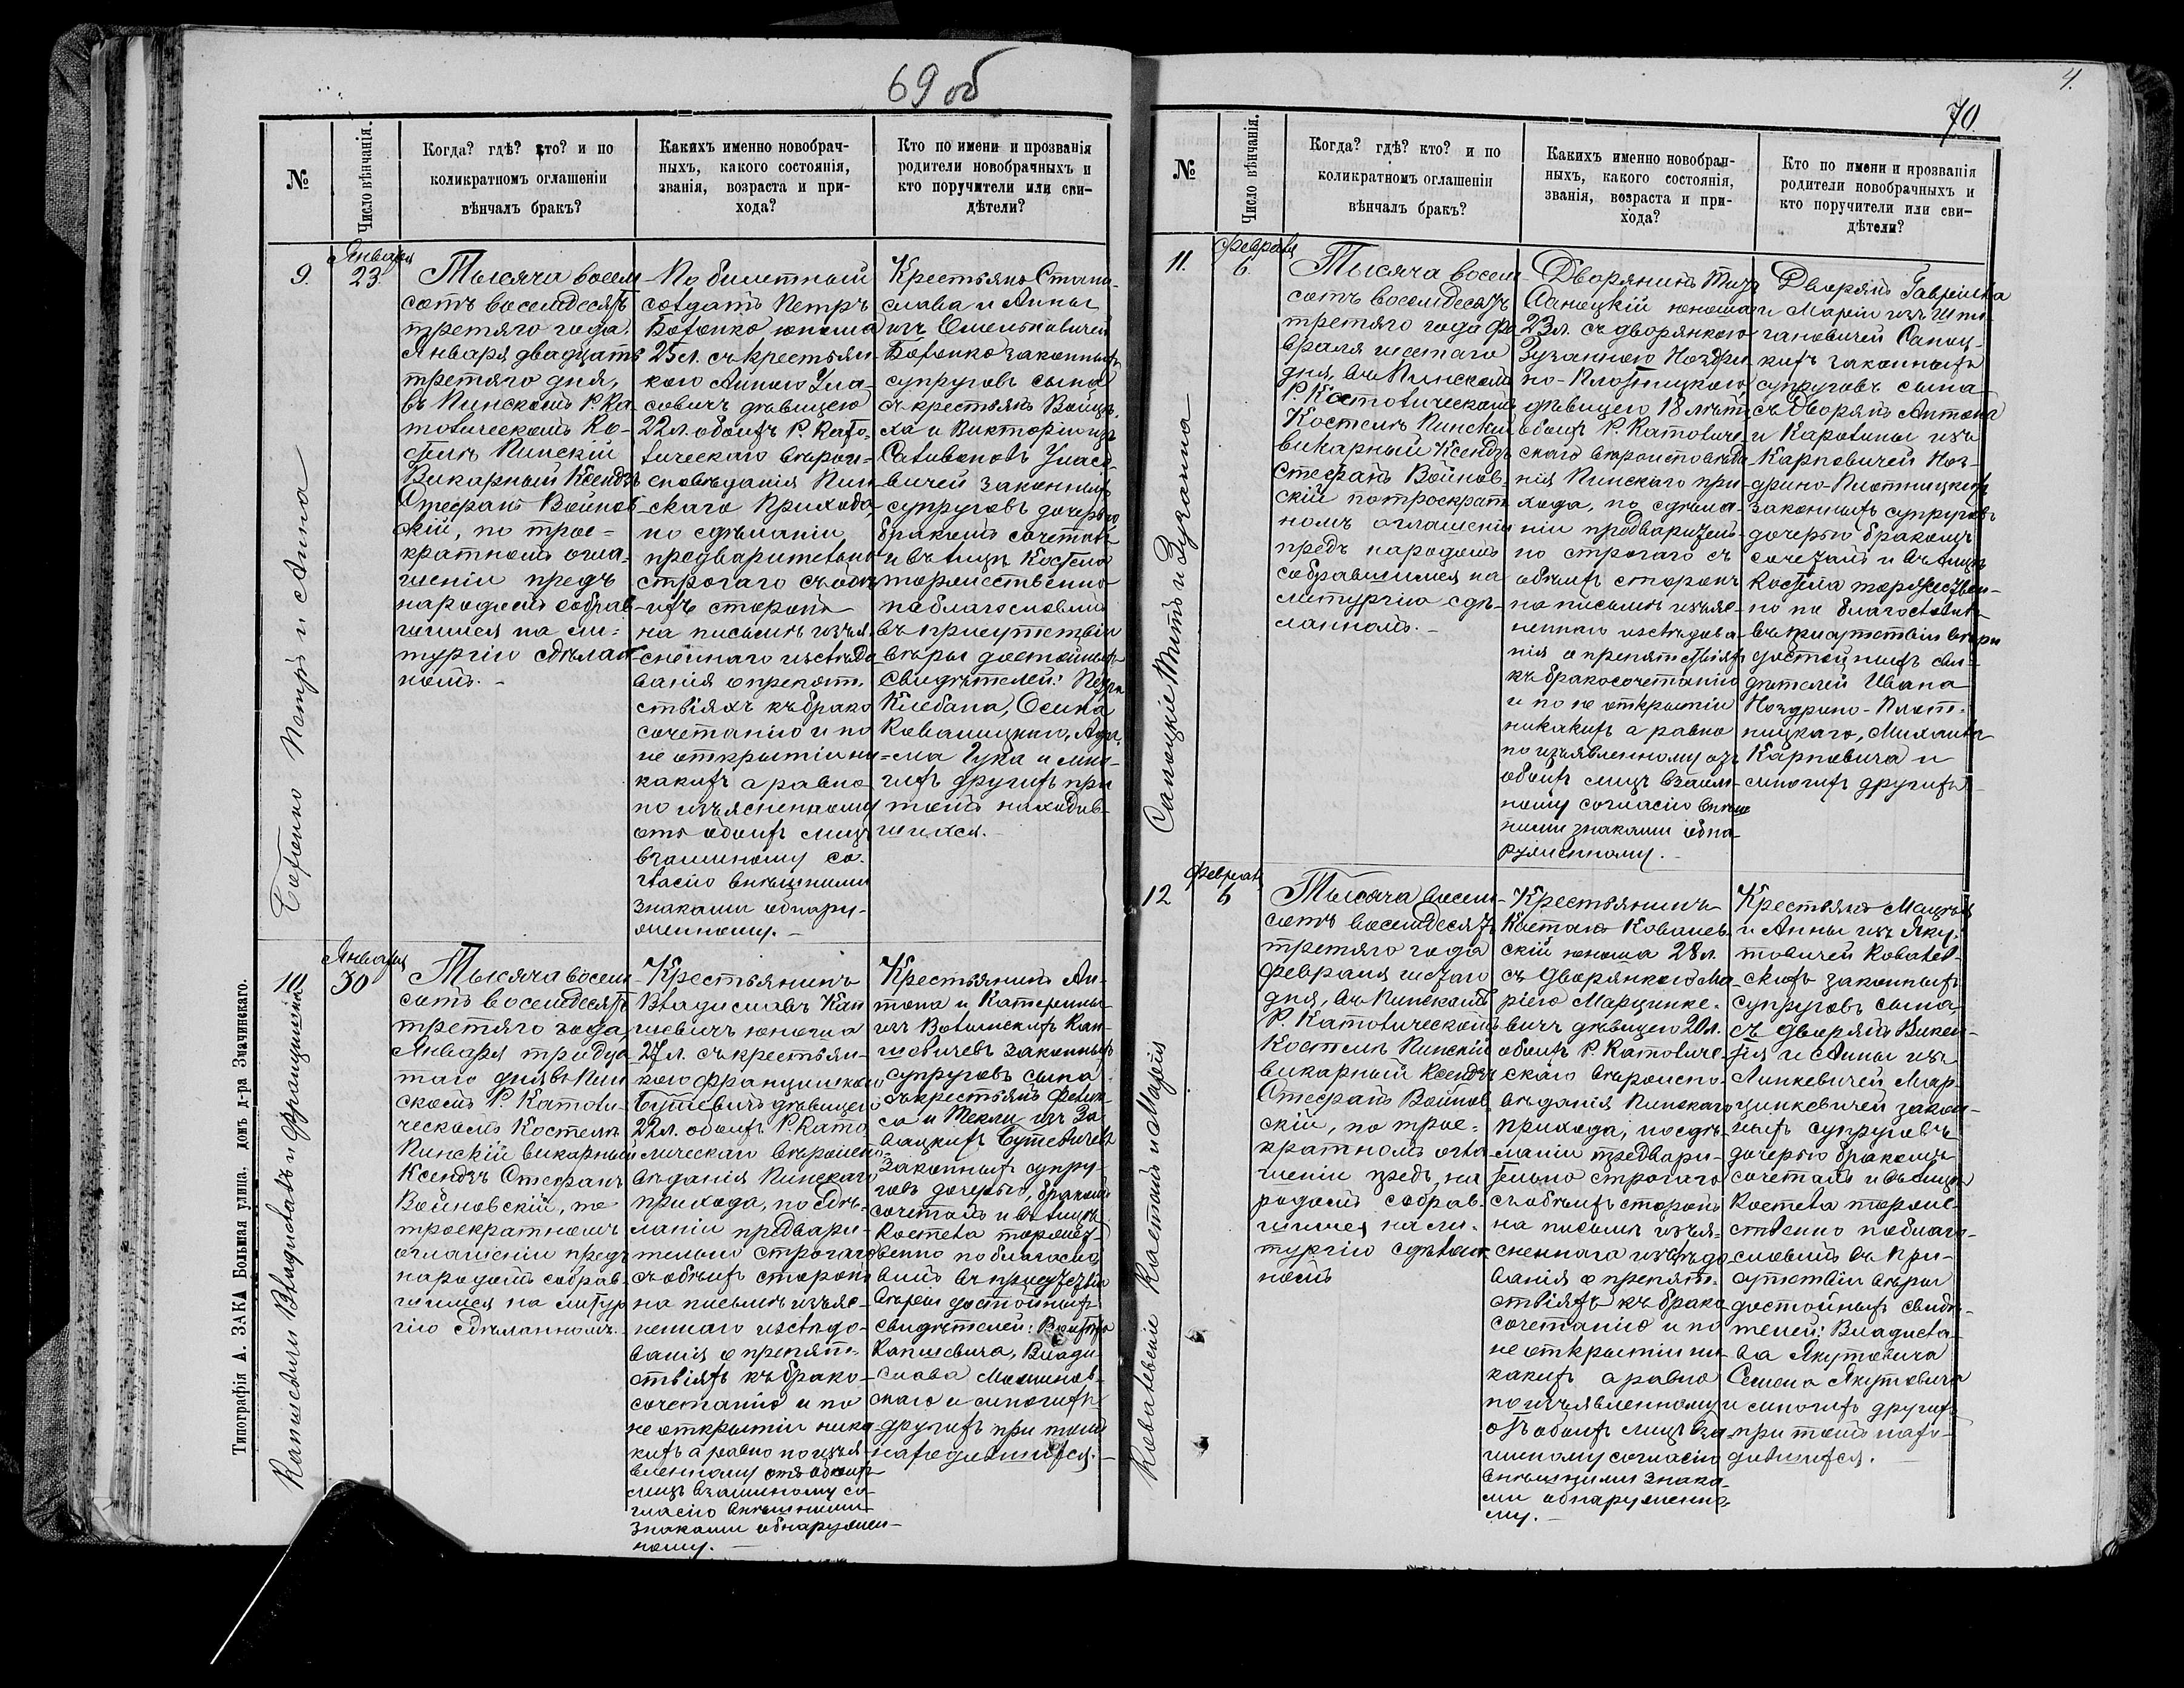 69 об
№
Число вѣнчанія.
Когда? гдѣ? кто? и по
коликратномъ оглашеніи
вѣнчалъ бракъ?
Какихъ именно новобрач-
ныхъ, какого состоянія,
званія, возраста и при-
хода?
Кто по имени и прозванія
родители новобрачныхъ и
кто поручители или сви-
дѣтели?
9.
Января
23.
Петръ и Анна
Тысяча восем
сотъ восемдесятъ
третяго года.
Января двадцать
третяго дня,
въ Пинскомъ Р. Ка-
толическомъ Ко-
стелѣ Пинскій
Викарный Ксендзъ
Стефанъ Войнов-
скій, по трое-
кратномъ огла-
шеніи предъ
народомъ собрав-
шимся на ли-
тургію сдѣлан-
номъ.
По билетный
солдатъ Петръ
юноша
25 л. съ крестьян-
кою Анною
дѣвицею
22 л. обоихъ Р. Като-
лическаго вѣрои-
сповѣданія Пин-
скаго Прихода
по сдѣланіи
предварительно
строгаго съ обѣ-
ихъ сторонъ
на письмѣ изъя-
сненнаго изслѣдо-
ванія о препят-
ствіяхъ къ брако
сочетанію и по
не открытіи ни-
какихъ а равно
по изъясненному
отъ обоихъ лицъ
взаимному со-
гласію внѣшними
знаками обнару-
женному.
Крестьянъ Стани-
слава и Анны
изъ
законныхъ
супруговъ сына
съ крестьянъ Войцѣ-
ха и Викторіи изъ
вичей законныхъ
супруговъ дочерью,
бракомъ сочеталъ
и въ лицѣ Костела
торжественно
поблагословилъ
въ присутствіи
вѣры достойныхъ
свидѣтелей: Петра
Клебана, Осипа
и мно-
гихъ другихъ при
томъ находив-
шихся.
10
Января
30
Капшевичи Владиславъ и Францишка
Тысяча восем
сотъ восемдесятъ
третяго года,
Января тридца-
таго дня въ Пин-
скомъ Р. Католи-
ческомъ Костелѣ
Пинскій викарный
Ксендзъ Стефанъ
Войновскій, по
троекратномъ
оглашеніи предъ
народомъ собрав-
шимся на литур-
гію сдѣланномъ.
Крестьянинъ
Владиславъ Кап-
шевичъ юноша
27 л. съ крестьян-
кою Францишкою
Бутевичъ дѣвицею
22 л. обоихъ Р. Като-
лическаго вѣроиспо-
вѣданія Пинскаго
прихода, по сдѣ-
ланіи предвари-
тельно строгаго
съ обѣихъ сторонъ
на письмѣ изъяс-
неннаго изслѣдо-
ванія о препят-
ствіяхъ къ брако-
сочетанію и по
не открытіи ника-
кихъ а равно по изъя-
вленному отъ обоихъ
лицъ взаимному со-
гласію внѣшними
знаками обнаружен-
ному.
Крестьянинъ Ан-
тона и Катерины
изъ Кап-
шевичевъ законныхъ
супруговъ сына
съ крестьянъ Фелик-
са и Текли изъ За-
Бутевичевъ
законныхъ супру-
говъ дочерью, бракомъ
сочеталъ и въ лицѣ
Костела торжест-
венно поблагосло-
вилъ въ присутствіи
вѣры достойныхъ
свидѣтелей:
Капшевича, Влади-
слава
скаго и многихъ
другихъ при томъ
находившихся.
Типографія А. ЗАКА Большая улица. домъ д-ра Значинскаго.
4.
70.
№
Число вѣнчанія.
Когда? гдѣ? кто? и по
коликратномъ оглашеніи
вѣнчалъ бракъ?
Какихъ именно новобрач-
ныхъ, какого состоянія,
званія, возраста и при-
хода?
Кто по имени и прозванія
родители новобрачныхъ и
кто поручители или сви-
дѣтели?
11.
Февраля
6.
Саноцкіе Титъ и Зузанна
Тысяча восем
сотъ восемдесятъ
третяго года Фе-
враля шестаго
дня, въ Пинскомъ
Р. Католическомъ
Костелѣ Пинскій
викарный Ксендзъ
Стефанъ Войнов-
скій по троекрат-
номъ оглашеніи
предъ народомъ
собравшимся на
литургію сдѣ-
ланномъ.
Дворянинъ Титъ
Саноцкій юноша
23 л. съ дворянкою
Зузанною Ноздри-
но-Плотницкою
дѣвицею 18 лѣтъ
обоихъ Р. Католиче-
скаго вѣроисповѣда-
нія Пинскаго при-
хода, по сдѣла-
ніи предваритель-
но строгаго съ
обѣихъ сторонъ
на письмѣ изъяс-
неннаго изслѣдова-
нія о препятствіяхъ
къ бракосочетанію
и по не открытіи
никакихъ а равно
по изъявленному отъ
обоихъ лицъ взаим-
ному согласію внѣш-
ними знаками обна-
руженному.
Дворянъ Гавріила
и Маріи изъ
гановичей Саноц-
кихъ законныхъ
супруговъ сына
съ Дворянъ Антона
и Каролины изъ
Карповичей Ноз-
дрино-Плотницкихъ
законныхъ супруговъ
дочерью бракомъ
сочеталъ и въ лицѣ
Костела торжествен-
но по благословилъ
въ присутствіи вѣры
достойныхъ сви-
дѣтелей Ивана
Ноздрино-Плот-
ницкаго, Михаила
Карповича и
многихъ другихъ
12
Февраля
6
Ковалевскіе Каетанъ и Марія
Тысяча восем
сотъ восемдесятъ
третяго года
Февраля шестаго
дня, въ Пинскомъ
Р. Католическомъ
Костелѣ Пинскій
викарный Ксендзъ
Стефанъ Войнов-
скій, по трое-
кратномъ огла-
шеніи предъ на-
родомъ собрав-
шимся на ли-
тургію сдѣлан-
номъ
Крестьянинъ
Каетанъ Ковалев-
скій юноша 28 л.
съ Дворянкою Ма-
ріею Марцинке-
вичъ дѣвицею 20 л.
обоихъ Р. Католиче-
скаго вѣроиспо-
вѣданія Пинскаго
прихода, по сдѣ-
ланіи предвари-
тельно строгаго
съ обѣихъ сторонъ
на письмѣ изъя-
сненнаго изслѣдо-
ванія о препят-
ствіяхъ къ брако
сочетанію и по
не открытіи ни-
какихъ а равно
по изъявленному
отъ обоихъ лицъ вза-
имному согласію
внѣшними знака-
ми обнаруженно-
му.
Крестьянъ Мацѣя
и Анны изъ Яку-
товичей Ковалев-
скихъ законныхъ
супруговъ сына,
съ дворянъ Викен-
тія и Анны изъ
Линкевичей Мар-
цинкевичей закон-
ныхъ супруговъ
дочерью бракомъ
сочеталъ и въ лицѣ
Костела торже-
ственно поблаго-
словилъ въ при-
сутствіи вѣры
достойныхъ свидѣ-
телей: Владисла-
ва Якутовича
Семена Якутовича
и многихъ другихъ
при томъ нахо-
дившихся.